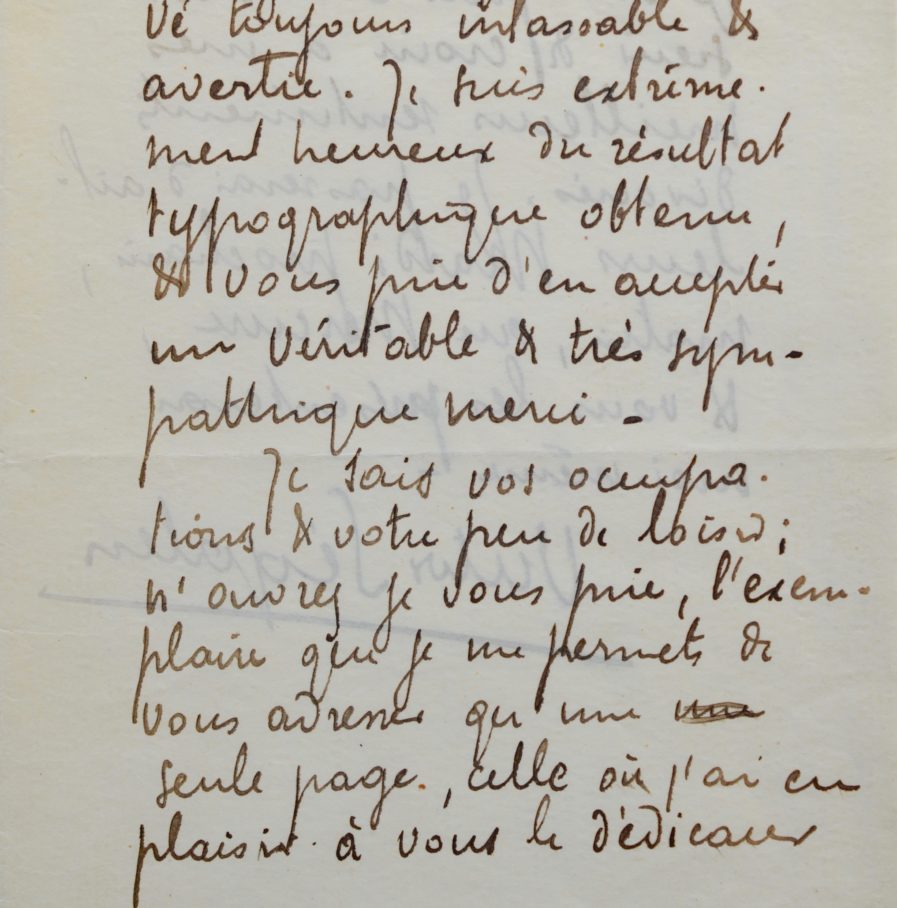 vé toujours inlassable &
avertie. Je suis extrême-
ment heureux du résultat
typographique obtenu,
& vous prie d'en accepter
un véritable & très sym-
pathique merci -
Je sais vos occupa-
tions & votre peu de loisir;
n'ouvrez je vous prie, l'exem-
plaire que je me permets de
vous adresser qu'une
seule page, celle où j'ai eu
plaisir à vous le dédicacer